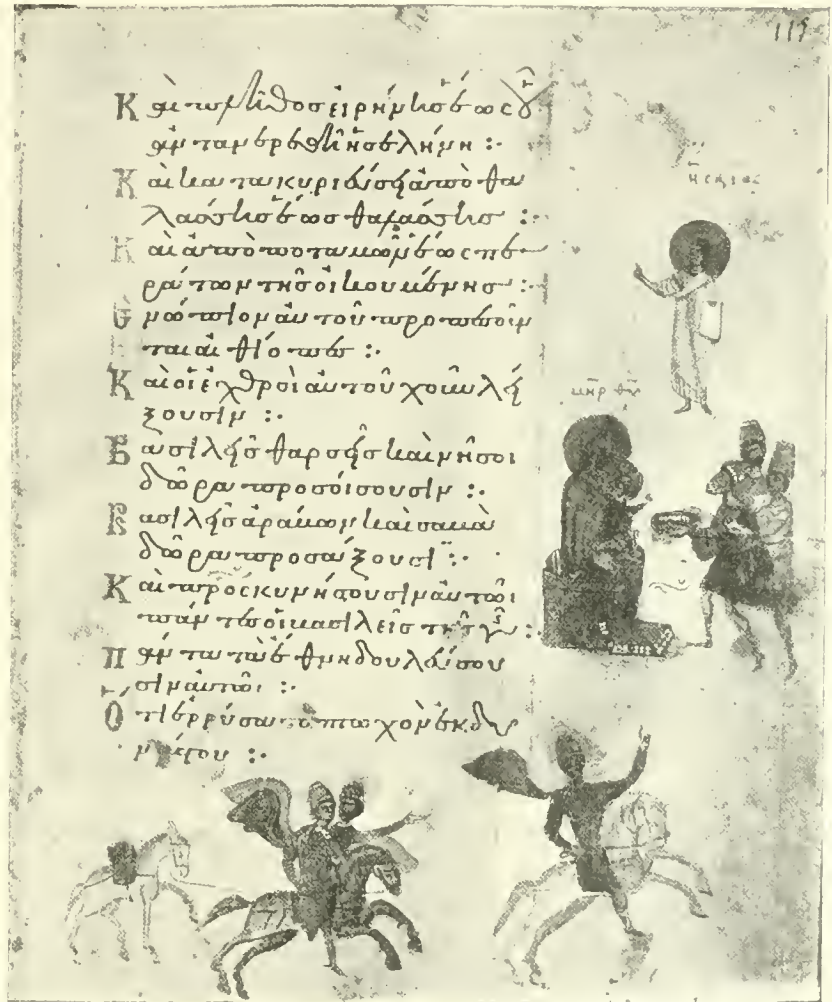 119
Καὶ πλῆθος εἰρήνης ἕως οὗ
ἀντανερεθῆ ἡ σελήνη :·
Καὶ κατακυριεύσει ἀπὸ θα
λάσσης ἕως θαλάσσης :·
Καὶ ἀπὸ ποταμῶν ἕως πε
ράτων τῆς οἰκουμένης :·
Ἐνώπιον αὐτοῦ προπεσοῦν
ται αἰθίοπες :·
Καὶ οἱ ἐχθροὶ αὐτοῦ χοῦν λεί
ξουσιν :·
Βασιλεῖς θαρσεῖς καὶ νῆσοι
δῶρα προσοίσουσιν :·
Βασιλεῖς ἀράβων καὶ σαβὰ
δῶρα προσάξουσι :·
Καὶ προσκυνήσουσιν αὐτῶι
πάντες οἱ βασιλεῖς τῆς γῆς :·
Πάντα τὰ ἔθνη δουλεύσου
σιν αὐτῶι :·
Ὅτι ἐρρύσατο πτωχὸν ἐκ δυ
νάστου :·
μηρ θυ